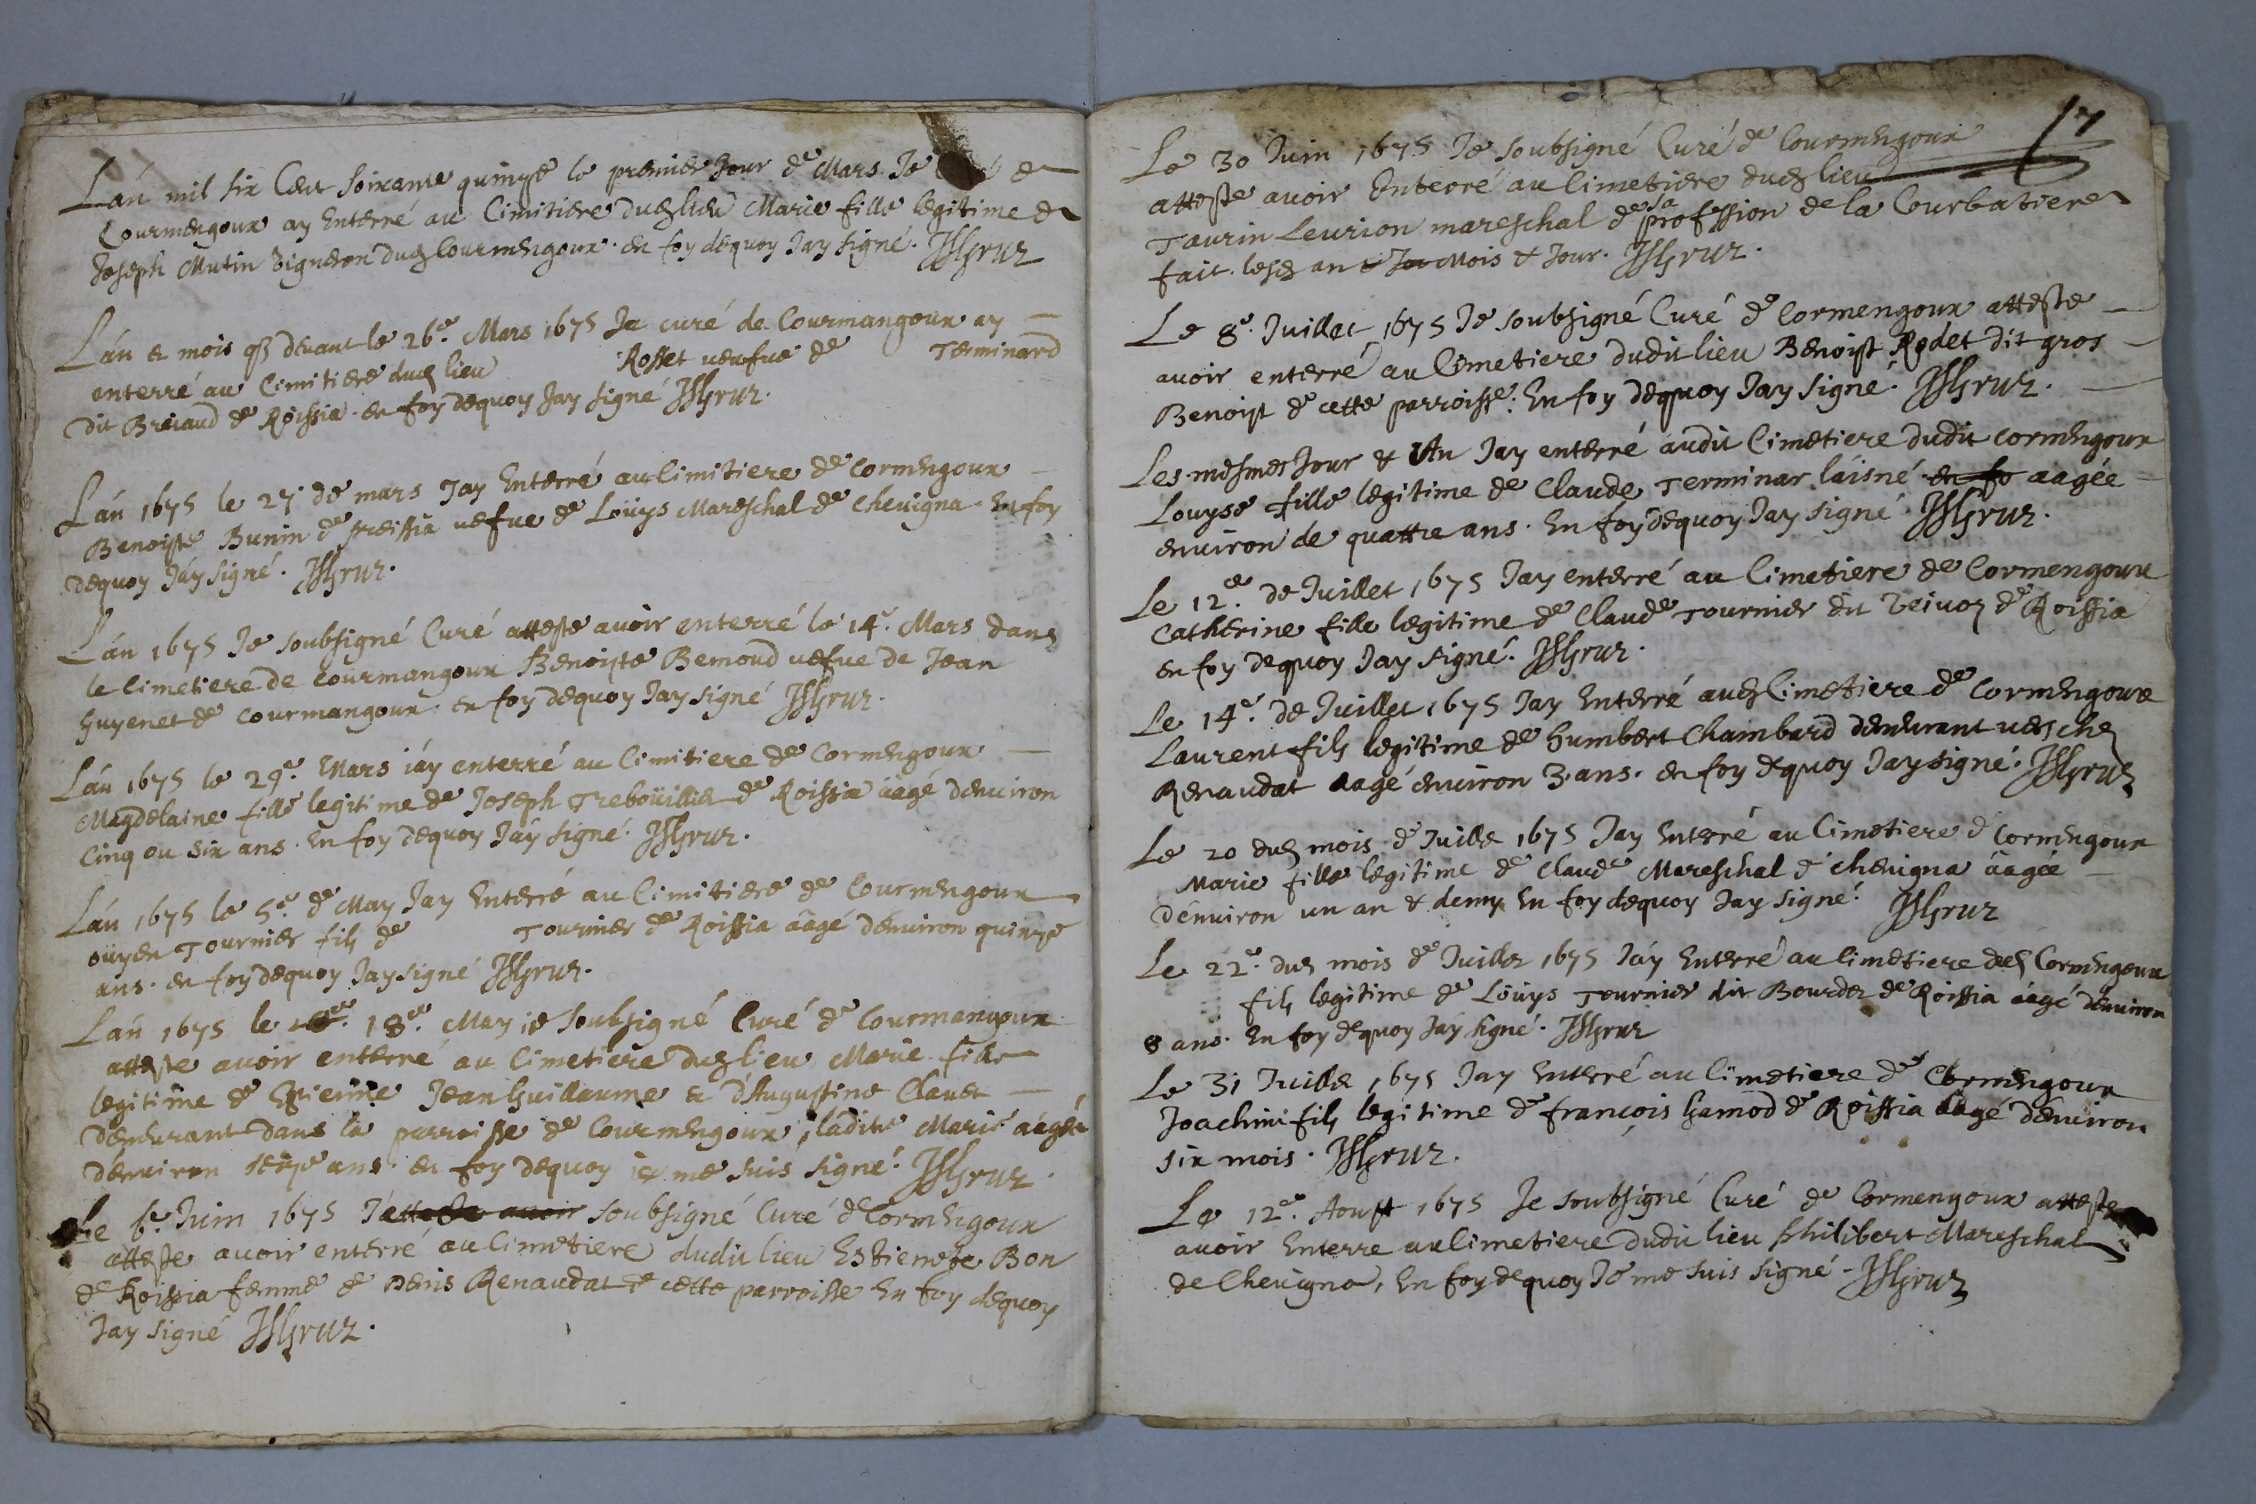 Lán mil six Cent soixante quinze le premier Jour de Mars. Je de
Courmengoux ay Enterré au Cimitiere dud lieu Marie fille legitime de
Joseph Mutin Vigneron dud Courmengoux. en foy dequoy Jay signé.
Lán et mois q dèvant le 26e. Mars 1675 Je curé de Courmangoux ay
enterré au Cimitiere dud lieu Rosset veufve de Terminard
dit Briaud de Roissia. en foy dequoy Jay signé
Lán 1675 le 27 de mars Jay Enterré au Cimitiere de Cormengoux
Benoiste Bunin de vefve de Loüys Mareschal de Chevigna. En foy
dequoy Jáy signé.
Lán 1675 Je soubsigné Curé atteste avoir enterré le 14e. Mars dans
le Cimetiere de Courmangoux Benoiste Bemond vefve de Jean
Guyenet de Courmangoux. en foy dequoy Jay signé
Lán 1675 le 29e. Mars iáy enterré au Cimitiere de Cormengoux
Magdelaine fille legitime de Joseph Treboüillier de Roissia áagé dénviron
Cinq ou six ans. En foy dequoy Jáy signé.
Lán 1675 le 5e. de May Jay Enterré au Cimitiere de Courmengoux
oüyen Tournier fils de Tournier de Roissia áagé dénviron quinze
ans. en foy dequoy Jay signé
Lán 1675 le 18e. May ie soubsigné Curé de Courmangoux
atteste avoir enterré au Cimetiere dud lieu Marie fille
legitime de Jean Guillaume et dAugustine Clavet
demeurant dans la parroisse de Courmengoux, ladite Marie áagée
dénviron seize ans. en foy dequoy ie me suis signé.
Le 6e. Juin 1675 Jatteste avoir soubsigné Curé de Cormengoux
atteste avoir enterré au Cimetiere dudit lieu Bon
de Roissia femme de Denis Renaudat de cette parroisse En foy dequoy
Jay signé
17
Le 30 Juin 1675 Je soubsigné Curé de Courmengoux
atteste avoir Enterré au Cimetiere dud lieu
Taurin Leurion mareschal de sa profession de la Courbatiere
fait. lesd an Mois & Jour.
Le 8e. Juillet 1675 Je soubsigné Curé de Cormengoux atteste
avoir enterré au Cimetiere dudit lieu Benoist Rodet dit gros
Benoist de cette parroisse. En foy dequoy Jay signé.
Les mesmes Jour & An Jay enterré audit Cimetiere dudit Cormengoux
Louyse fille legitime de Claude Terminar láisné en fo aagée
environ de quattre ans. En foy dequoy Jay signé.
Le 12e. de Juillet 1675 Jay enterré au Cimetiere de Cormengoux
Catherine fille legitime de Claude Tournier dit de Roissia
en foy dequoy Jay signé.
Le 14e. de Juillet 1675 Jay Enterré aud Cimetiere de Cormengoux
Laurent fils legitime de Humbert Chambard demeurant vers chez
Renaudat aagé environ 3 ans. en foy dequoy Jay signé.
Le 20 dud mois de Juillet 1675 Jay Enterré au Cimetiere de Cormengoux
Marie fille legitime de Claude Mareschal de Chevigna áagée
dénviron un an & demy. En foy dequoy Jay signé.
Le 22e. dud mois de Juillet 1675 Jáy Enterré au Cimetiere de Cormengoux
fils legitime de Loüys Tournier dit Bourdez de Roissia áagé dénviron
8 ans. En foy dequoy Jáy signé.
Le 31 Juillet 1675 Jay Enterré au Cimetiere de Cormengoux
Joachim fils legitime de françois Gamod de Roissia áagé dénviron
six mois.
Le 12e. Aoust 1675 Je soubsigné Curé de Cormengoux atteste
avoir Enterre au Cimetiere dudit lieu philibert Mareschal
de Chevigna, En foy dequoy Je me suis signé.